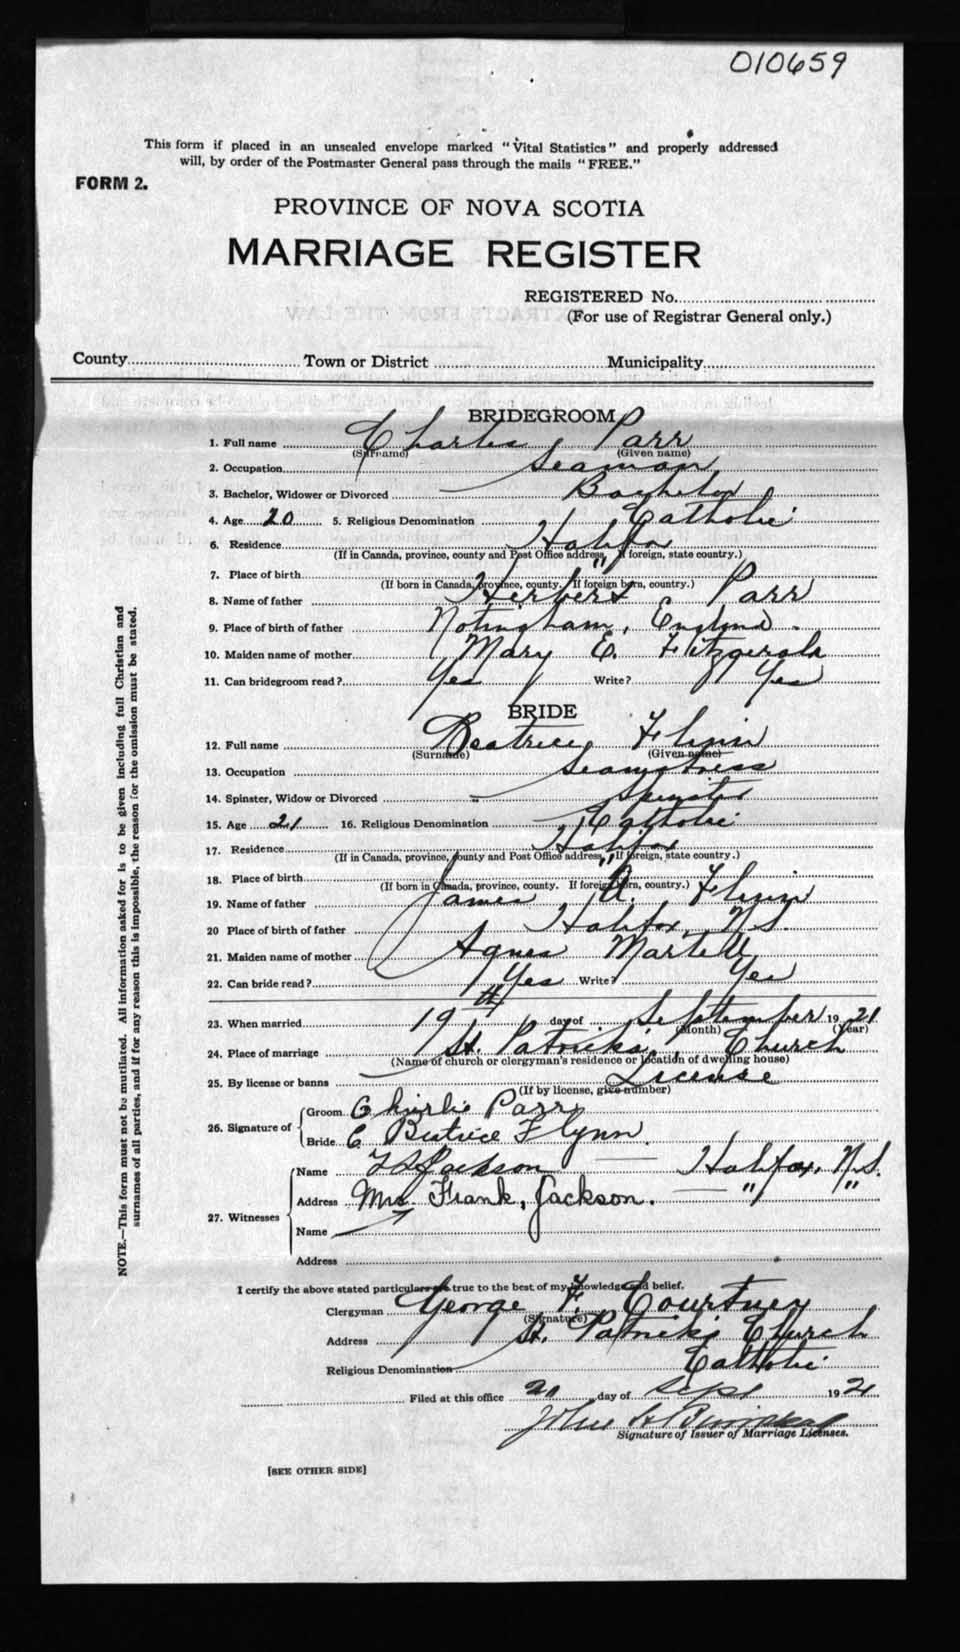 010659
This form if placed in an unsealed envelope marked "Vital Statistics" and properly addressed
will, by order of the Postmaster General pass through the mails "FREE."
FORM 2.
PROVINCE OF NOVA SCOTIA
MARRIAGE REGISTER
REGISTERED No.
(For use of Registrar General only.)
County Town or District Municipality
BRIDEGROOM
1. Full name Charles Parr
(Surname) (Given name)
2. Occupation Seaman
3. Bachelor, Widower or Divorced Bachelor
4. Age 20 5. Religious Denomination Catholic
6. Residence Halifax
(If in Canada, province, county and Post Office address, If foreign, state country.)
7. Place of birth "
(If born in Canada, province, county. If foreign born, country.)
8. Name of father Herbert Parr
9. Place of birth of father Notingham, England.
10. Maiden name of mother Mary E. Fitzgerald
11. Can bridegroom read? Yes Write? Yes
BRIDE
12. Full name Beatrice Flinn
(Surname) (Given name)
13. Occupation Seamstress
14. Spinster, Widow or Divorced Spinster
15. Age 21 16. Religious Denomination Catholic
17. Residence Halifax
(If in Canada, province, county and Post Office address, If foreign, state country.)
18. Place of birth "
(If born in Canada, province, county. If foreign born, country.)
19. Name of father James A. Flinn
20 Place of birth of father Halifax, N.S.
21. Maiden name of mother Agnes Martell
22. Can bride read? Yes Write? Yes
23. When married 19th day of September 1921
(Month) (Year)
24. Place of marriage St. Patricks Church
(Name of church or clergyman's residence or location of dwelling house)
25. By license or banns License
(If by license, give number)
26. Signature of Groom Charlie Parr
Bride C Beatrice Flynn.
27. Witnesses Name Jackson Halifax, N.S.
Address Mrs. Frank, Jackson. " "
Name
Address
I certify the above stated particulars are true to the best of my knowledge and belief.
Clergyman George F. Courtney
(Signature)
Address St. Patrick's Church
Religious Denomination Catholic
Filed at this office 20 day of Sept 1921
John
Signature of Issuer of Marriage Licenses.
[SEE OTHER SIDE]
NOTE.—This form must not be mutilated. All information asked for is to be given including full Christian and
surnames of all parties, and if for any reason this is impossible, the reason for the omission must be stated.